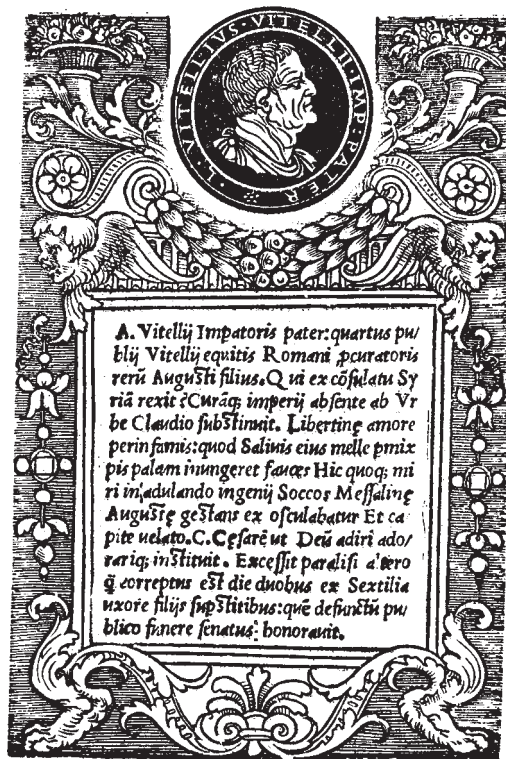 L·VITELLIVS·VITELLII·IMP·PATER
A. Vitellij Impatoris pater:quartus pu/
blij Vitellij equitis Romani ꝓcuratoris
rerū Augusti filius.Qui ex cōsulatu Sy
riā rexit ⁊Curāq; imperij absente ab Vr
be Claudio substinuit. Libertinę amore
perinfamis:quod Saliuis eius melle pmix
pis palam inungeret fauces Hic quoq; mi
ri in adulando ingenij Soccos Messalinę
Augustę gestans ex osculabatur Et ca
pite uelato.C.Cęsarē ut Deū adiri ado/
rariq; instituit. Excessit paralisi altero
q̄ correptus est die duobus ex Sextilia
uxore filijs supstitibus:quē defunctū pu/
blico funere senatus honorauit.